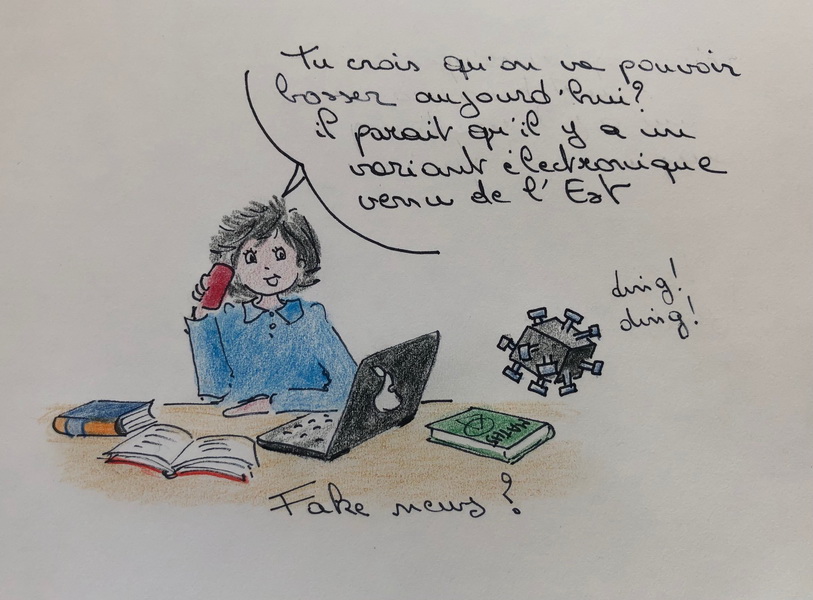 Tu crois qu'on va pouvoir
bosser aujourd'hui?
il parait qu'il y a un
variant électronique
venu de l'Est
ding!
ding!
MATHS
Fake news?